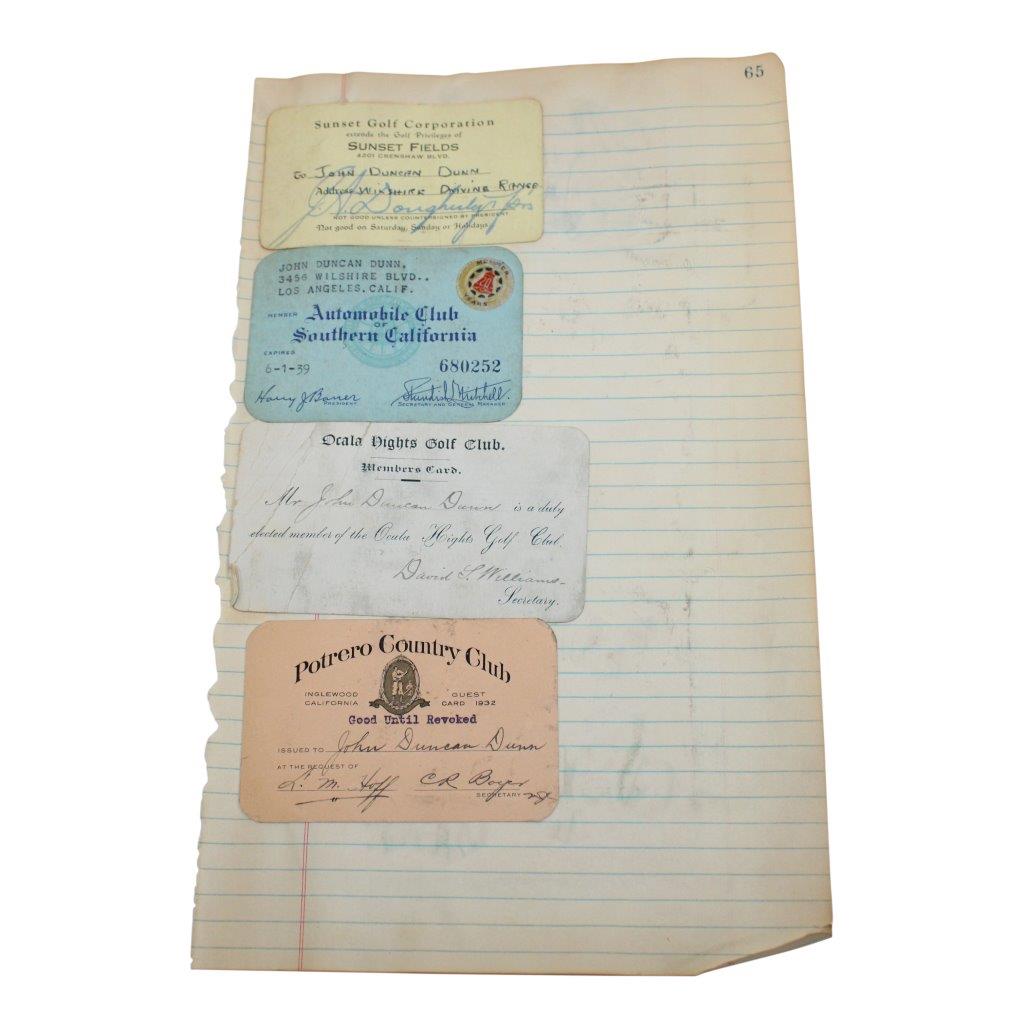 65
Sunset Golf Corporation
extends the Golf Privileges of
SUNSET FIELDS
4201 CRENSHAW BLVD.
To JOHN DUNCAN DUNN
Address WILSHIRE DRIVING RANGE
J. A. Dougherty
NOT GOOD UNLESS COUNTERSIGNED BY PRESIDENT
Not good on Saturday, Sunday or Holidays
JOHN DUNCAN DUNN,
3456 WILSHIRE BLVD..
LOS ANGELES.CALIF.
MEMBER
YEARS
MEMBER Automobile Club
OF
Southern California
EXPIRES
6-1-39 680252
Harry J Bauer Standish L Mitchell
PRESIDENT SECRETARY AND GENERAL MANAGER
Ocala Hights Golf Club.
Members Card.
Mr John Duncan Dunn is a duly
elected member of the Ocala Hights Golf Club.
David S. Williams
Secretary.
Potrero Country Club
INGLEWOOD GUEST
CALIFORNIA CARD 1932
Good Until Revoked
ISSUED TO John Duncan Dunn
AT THE REQUEST OF
L. M. Hoff CR Boyer
SECRETARY